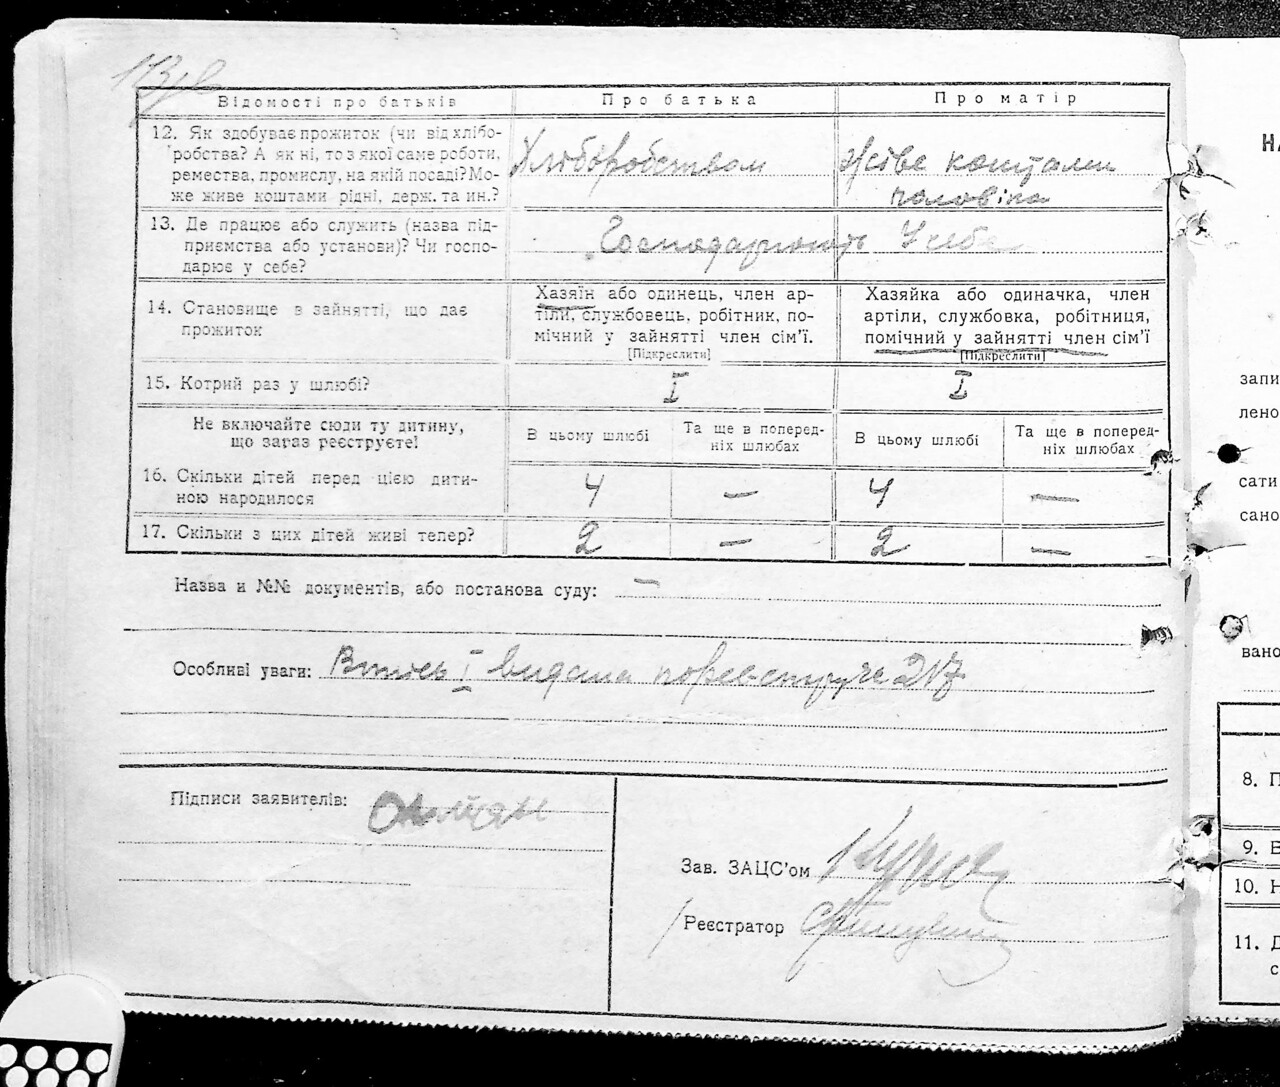 Відомості про батьків
Про батька
Про матір
12. Як здобуває прожиток (чи від хлібо-
робства? А як ні, то з якої саме роботи,
ремества, промислу, на якій посаді? Мо-
же живе коштами рідні, держ. та ин.?
Хліборобством
Живе коштами
13. Де працює або служить (назва під-
приємства або установи)? Чи госпо-
дарює у себе?
Господарюють У себе
14. Становище в зайнятті, що дає
прожиток
Хазяїн або одинець, член ар-
тіли, службовець, робітник, по-
мічний у зайнятті член сім'ї.
[Підкреслити]
Хазяйка або одиначка, член
артіли, службовка, робітниця,
помічний у зайнятті член сім'ї
[Підкреслити]
15. Котрий раз у шлюбі?
I
I
Не включайте сюди ту дитину,
що зараз реєструєте!
В цьому шлюбі
Та ще в поперед-
ніх шлюбах
В цьому шлюбі
Та ще в поперед-
ніх шлюбах
16. Скільки дітей перед цією дити-
ною народилося
4
—
4
—
17. Скільки з цих дітей живі тепер?
2
—
2
—
Назва и №№ документів, або постанова суду: —
Особливі уваги: I видана 217
Підписи заявителів:
Зав. ЗАЦС'ом
Реєстратор
На
запи
лено
сати
сано
вано
8. П
9. В
10. Н
11. Д
с